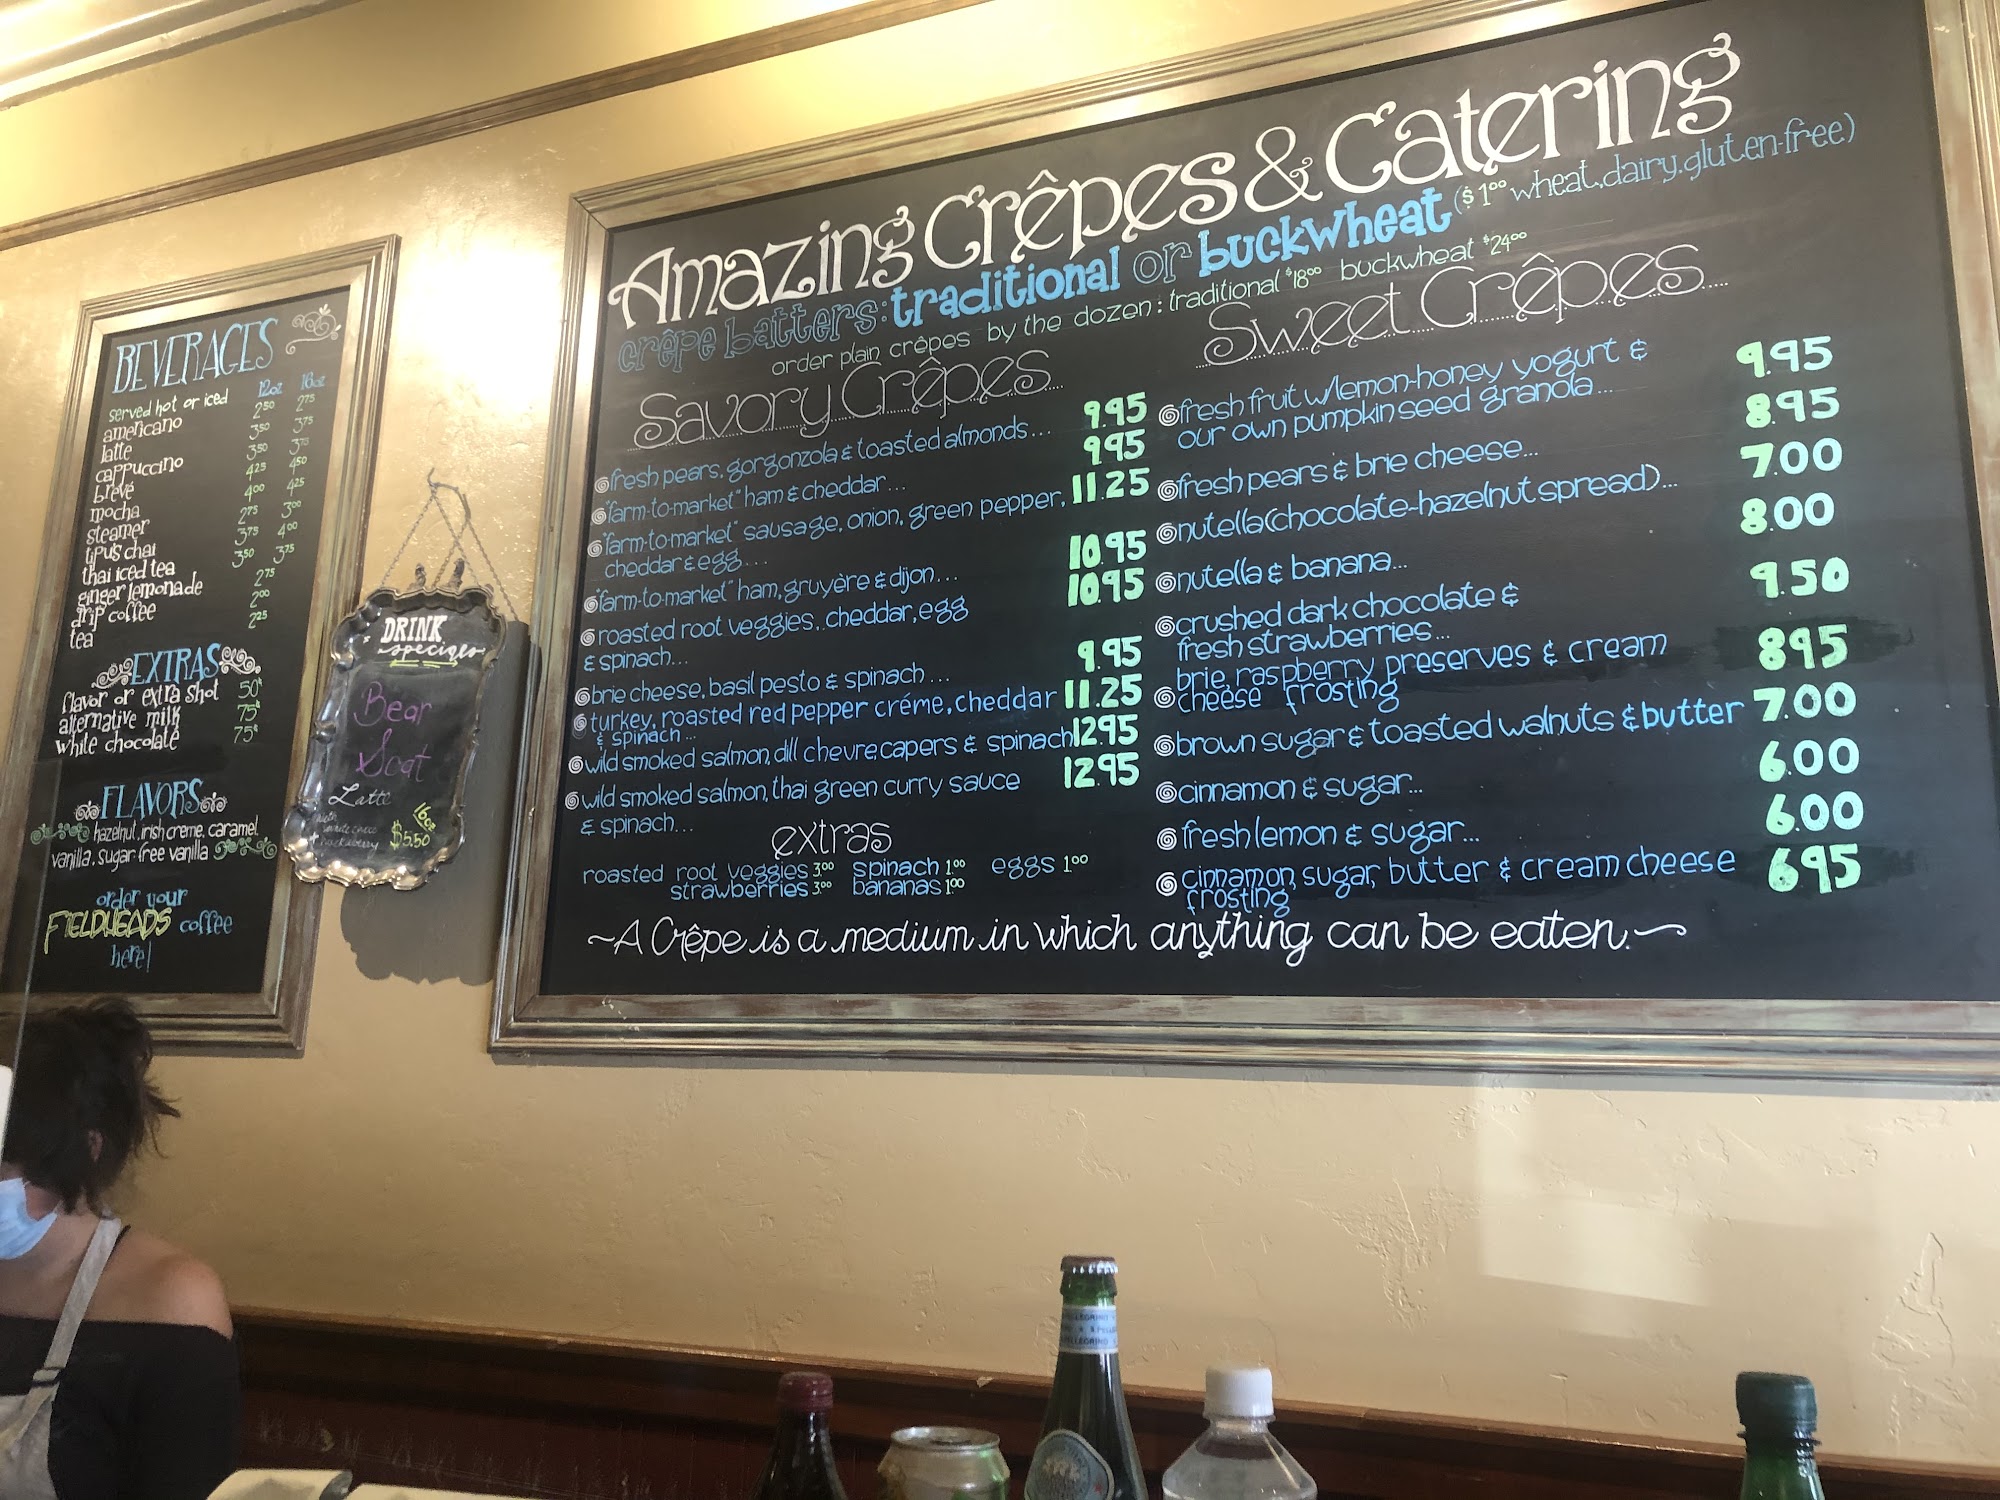 BEVERAGES
served hot or iced 12oz 16oz
americano 2⁵⁰ 2⁷⁵
latte 3⁵⁰ 3⁷⁵
cappuccino 3⁵⁰ 3⁷⁵
brevé 4²⁵ 4⁵⁰
mocha 4⁰⁰ 4²⁵
steamer 2⁷⁵ 3⁰⁰
tipu's chai 3⁷⁵ 4⁰⁰
thai iced tea 3⁵⁰ 3⁷⁵
ginger lemonade 2⁷⁵
drip coffee 2⁰⁰
tea 2²⁵
EXTRAS
flavor or extra shot 50¢
alternative milk 75¢
white chocolate 75¢
FLAVORS
hazelnut, irish creme, caramel,
vanilla, sugar-free vanilla
order your
FIELDHEADS coffee
here!
DRINK
specials
Bear
Scat
Latte
white choco
+ huckleberry
16oz
$5.50
Amazing Crêpes & Catering
crêpe batters: traditional or buckwheat ($1⁰⁰ wheat, dairy, gluten-free)
order plain crêpes by the dozen: traditional $18⁰⁰ buckwheat $24⁰⁰
Savory Crêpes
fresh pears, gorgonzola & toasted almonds... 9.95
"farm-to-market" ham & cheddar... 9.95
"farm-to-market" sausage, onion, green pepper, 11.25
cheddar & egg...
"farm-to-market" ham, gruyère & dijon... 10.95
roasted root veggies, cheddar, egg 10.95
& spinach...
brie cheese, basil pesto & spinach... 9.95
turkey, roasted red pepper créme, cheddar 11.25
& spinach...
wild smoked salmon, dill chevre, capers & spinach 12.95
wild smoked salmon, thai green curry sauce 12.95
& spinach...
extras
roasted root veggies 3⁰⁰ spinach 1⁰⁰ eggs 1⁰⁰
strawberries 3⁰⁰ bananas 1⁰⁰
Sweet Crêpes
fresh fruit w/lemon-honey yogurt & 9.95
our own pumpkin seed granola...
fresh pears & brie cheese... 8.95
nutella (chocolate-hazelnut spread)... 7.00
nutella & banana... 8.00
crushed dark chocolate & 9.50
fresh strawberries...
brie, raspberry preserves & cream 8.95
cheese frosting
brown sugar & toasted walnuts & butter 7.00
cinnamon & sugar... 6.00
fresh lemon & sugar... 6.00
cinnamon, sugar, butter & cream cheese 6.95
frosting
~A Crêpe is a medium in which anything can be eaten.~